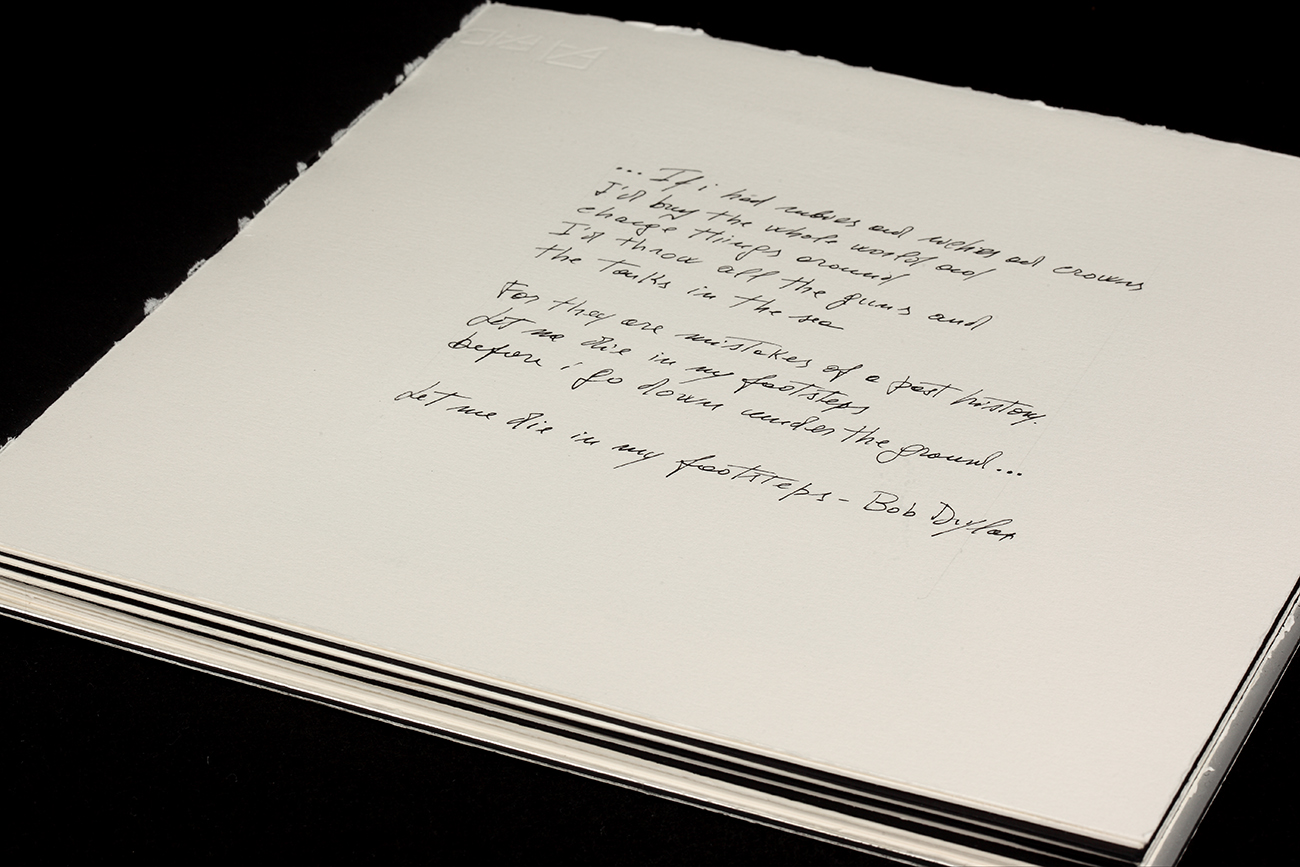 ... If i had rubies and riches and crowns
I'd buy the whole world and
change things around
I'd throw all the guns and
the tanks in the sea
For they are mistakes of a past history.
Let me die in my footsteps
before i go down under the ground...
Let me die in my footsteps - Bob Dylan